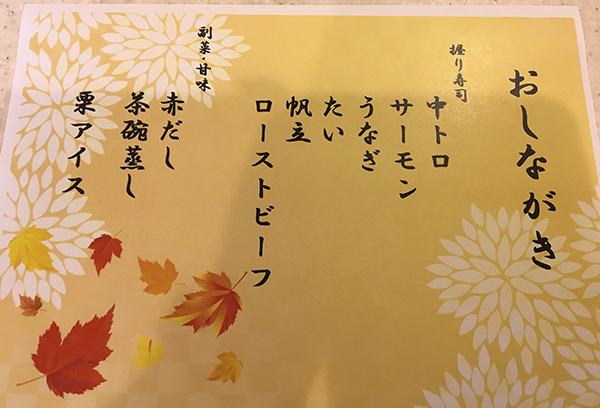 おしながき
握り寿司
中トロ
サーモン
うなぎ
たい
帆立
ローストビーフ
副菜・甘味
赤だし
茶碗蒸し
栗アイス